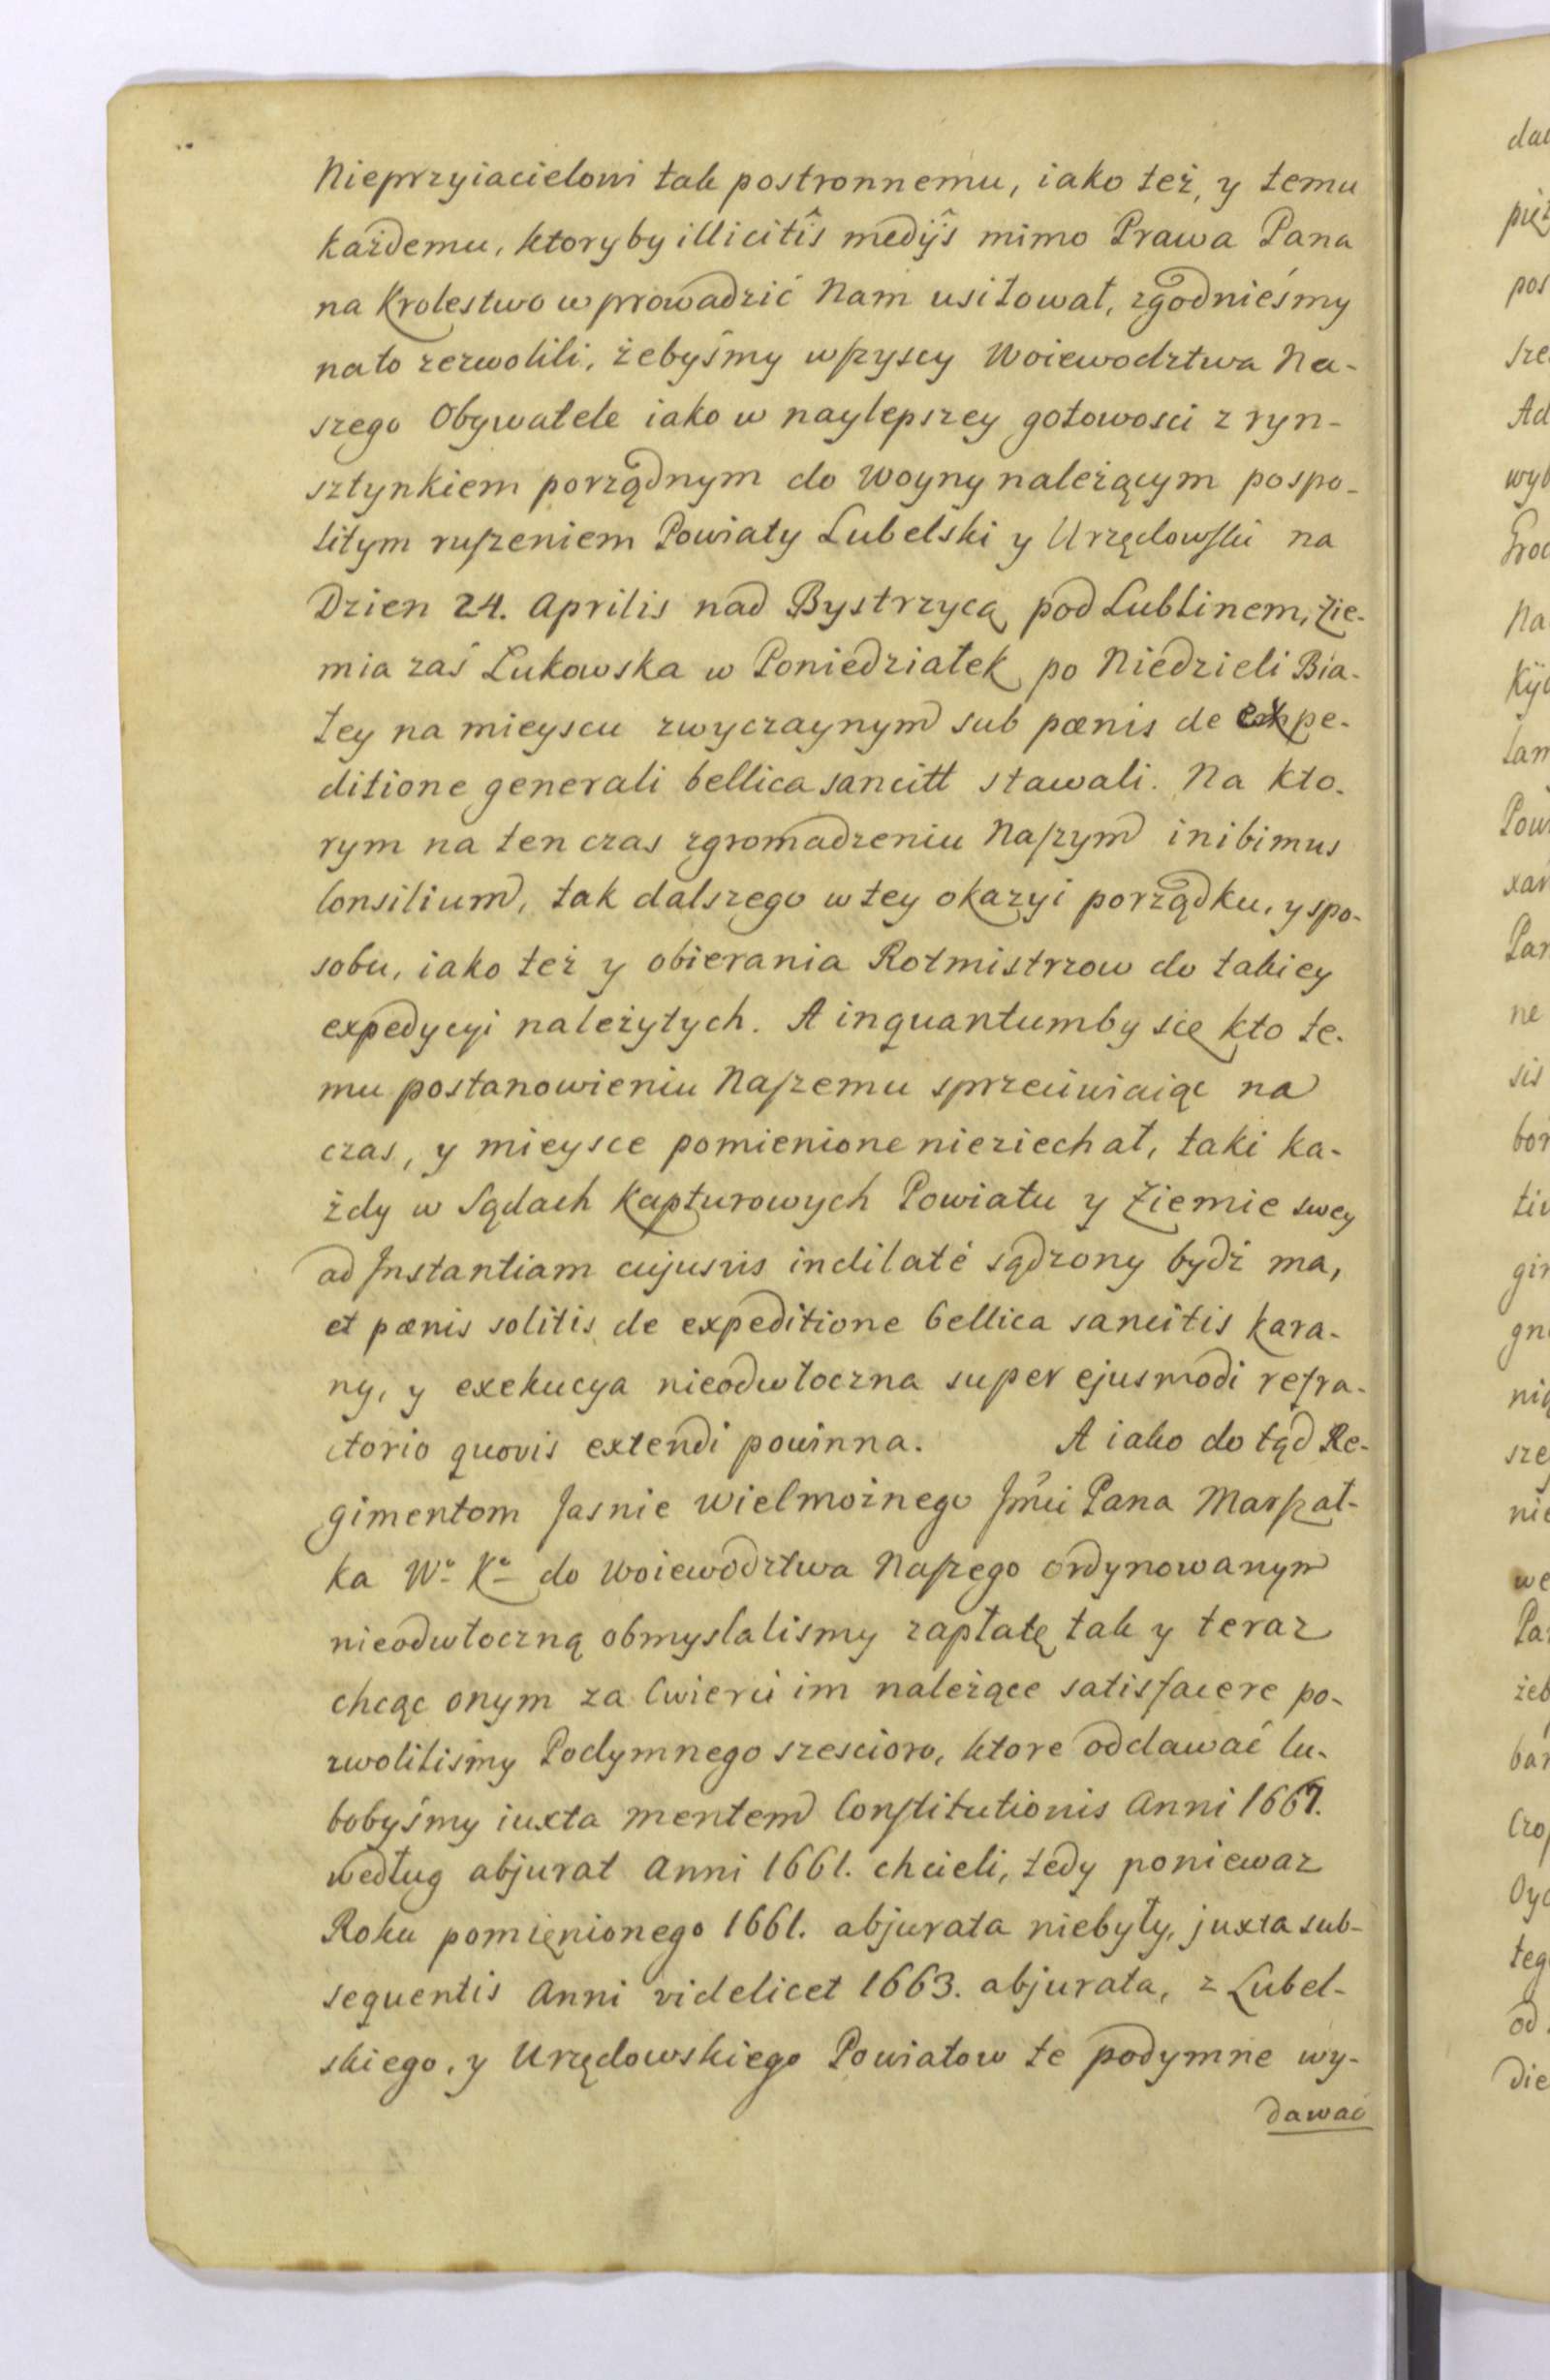 Nieprzyiacielowi tak postronnemu, iako też, y temu
każdemu, ktoryby illicitîs medyîs mimo Prawa Pana
na Krolestwo wprowadzić Nam usiłował, zgodnieśmy
nato zezwolili, żebyśmy wszyscy Woiewodztwa Na-
szego Obywatele iako w naylepszey gotowosci z ryn-
sztynkiem porządnym do Woyny należącym pospo-
litym ruszeniem Powiaty Lubelski y Urzędowski na
Dzien 24. Aprilis nad Bystrzycą pod Lublinem, Zie-
mia zaś Łukowska w Poniedziałek po Niedzieli Bia-
łey na mieyscu zwyczaynym sub pœnis de expe-
ditione generali bellica sancitt stawali. Na kto-
rym na ten czas zgromadzeniu Naszym inibimus
Consilium, tak dalszego w tey okazyi porządku, y spo-
sobu, iako też y obierania Rotmistrzow do takiey
expedycyi należytych. A inquantumby się kto te-
mu postanowieniu Naszemu sprzeciwiaiąc na
czas, y mieysce pomienione nieziechał, taki ka-
żdy w Sądach Kapturowych Powiatu y Ziemie swey
ad Instantiam cujusvis indilaté sądzony bydź ma,
et pœnis solitis de expeditione bellica sancitis kara-
ny, y exekucya nieodwłoczna super ejusmodi refra-
ctorio quovis extendi powinna. A iako do tąd Re-
gimentom Jasnie Wielmożnego Jmći Pana Marszał-
ka Wo Ko do Woiewodztwa Naszego ordynowanym
nieodwłoczną obmyslalismy zapłatę tak y teraz
chcąc onym za Cwierci im należące satisfacere po-
zwoliliśmy Podymnego szescioro, ktore oddawać lu-
bobyśmy iuxta mentem Constitutionis Anni 1667.
według abjurat Anni 1661. chcieli, tedy poniewaz
Roku pomięnionego 1661. abjurata niebyły, juxta sub-
sequentis Anni videlicet 1663. abjurata, z Lubel-
skiego, y Urzędowskiego Powiatow te podymne wy-
dawać